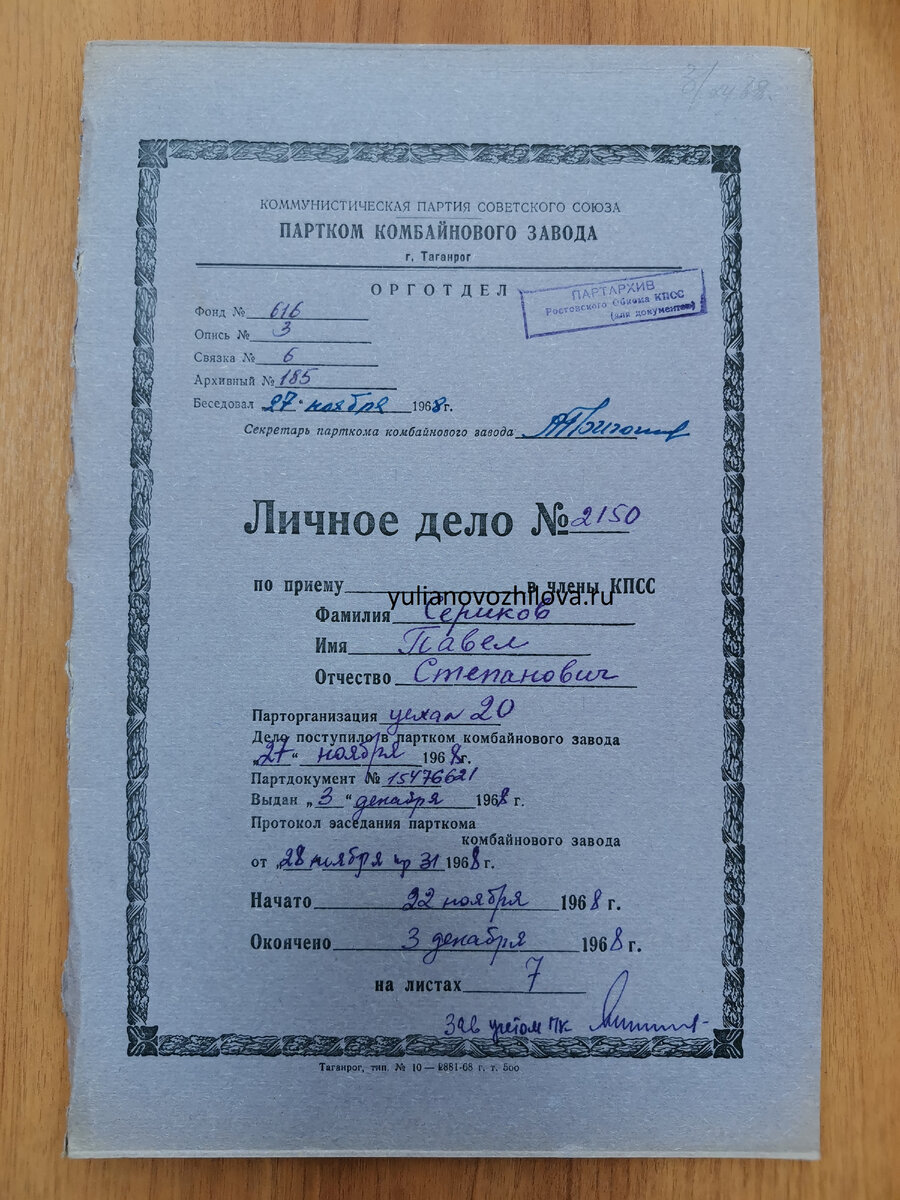 КОММУНИСТИЧЕСКАЯ ПАРТИЯ СОВЕТСКОГО СОЮЗА
ПАРТКОМ КОМБАЙНОВОГО ЗАВОДА
г. Таганрог
ОРГОТДЕЛ
ПАРТАРХИВ
Ростовского Обкома КПСС
(для документов)
Фонд № 616
Опись № 3
Связка № 6
Архивный № 185
Беседовал 27 " ноября 1968 г.
Секретарь парткома комбайнового завода
Личное дело № 2150
по приему в члены КПСС
yulianovozhilova.ru
Фамилия Сериков
Имя Павел
Отчество Степанович
Парторганизация цеха 20
Дело поступило в партком комбайнового завода
„27" ноября 1968 г.
Партдокумент № 15476621
Выдан „3" декабря 1968 г.
Протокол заседания парткома
комбайнового завода
от „28 ноября пр 31 1968 г.
Начато 22 ноября 1968 г.
Окончено 3 декабря 1968 г.
на листах 7
Зав учетом ПК
Таганрог, тип. № 10 — 2881-68 г. т. 500